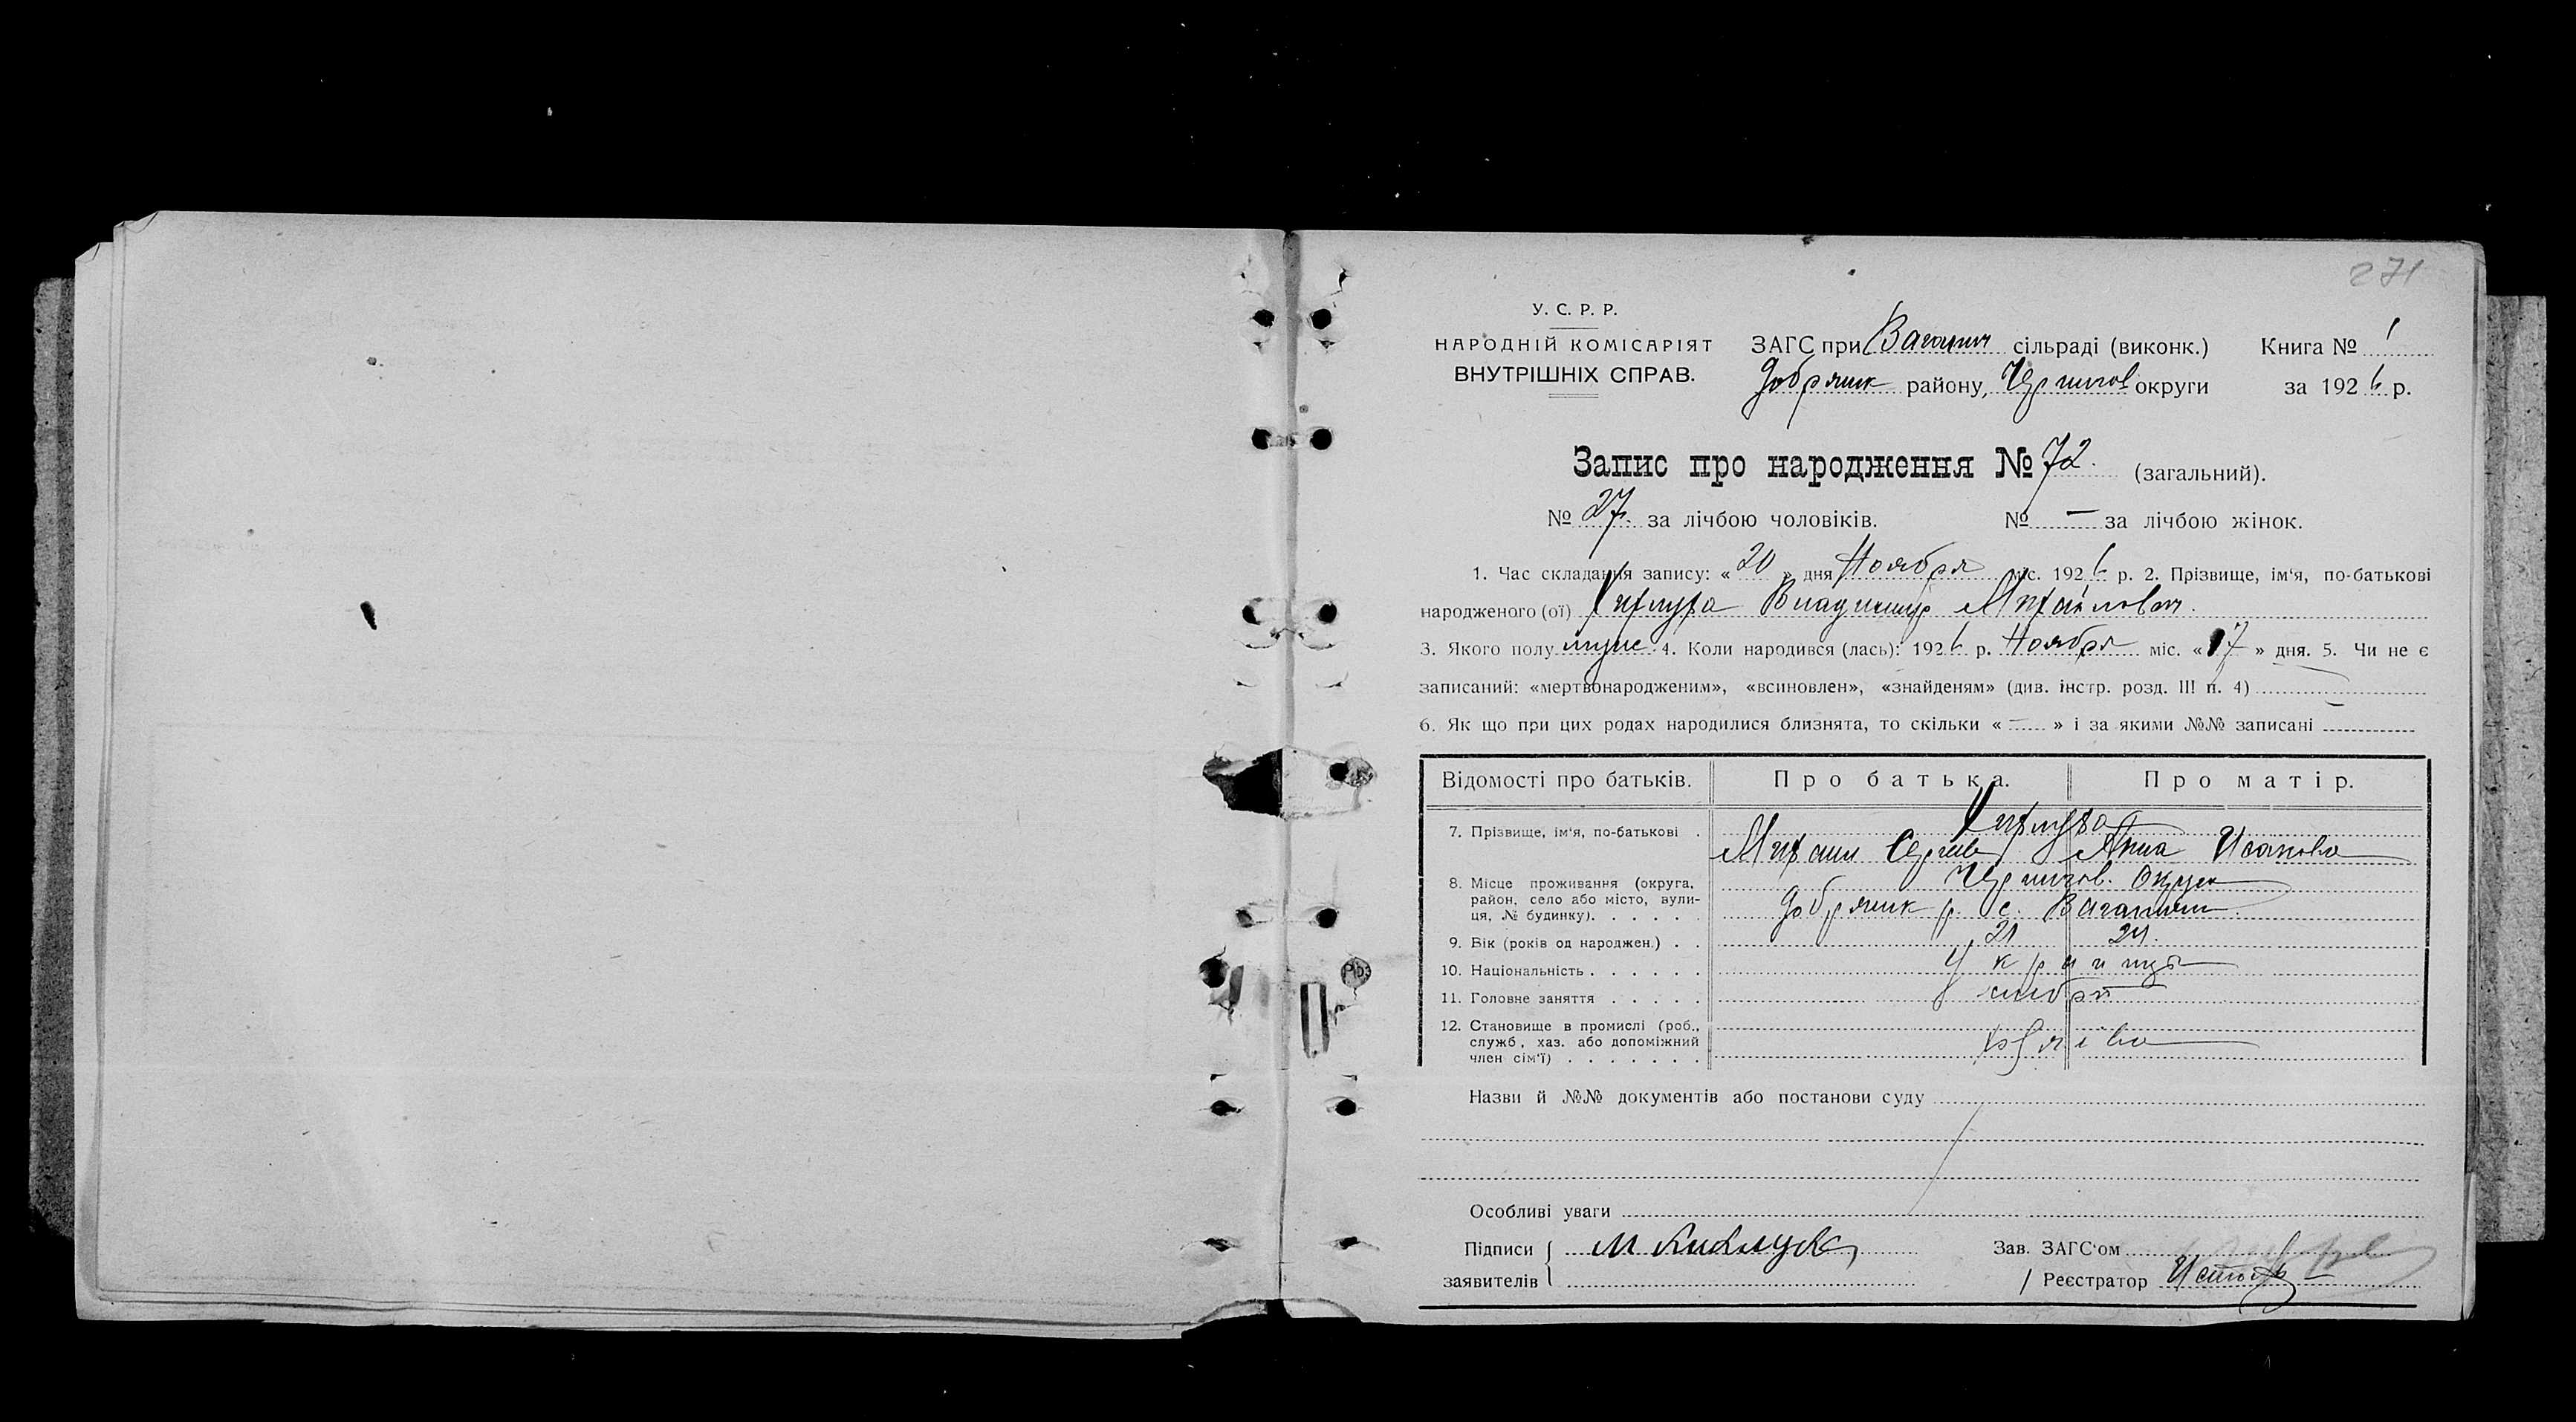 271
У. С. Р. Р.
НАРОДНІЙ КОМІСАРІЯТ
ВНУТРІШНІХ СПРАВ.
ЗАГС при Ваганич сільраді (виконк.) Книга № 1
Добрянск району, Чернигов округи за 1926 р.
Запис про народження № 72. (загальний).
№ 27. за лічбою чоловіків. № — за лічбою жінок.
1. Час складання запису: « 20 » дня Ноября міс. 1926 р. 2. Прізвище, ім'я, по-батькові
народженого (ої) Владимир Михайлович.
3. Якого полу муж 4. Коли народився (лась): 1926 р. Ноября міс. «17» дня. 5. Чи не є
записаний: «мертвонародженим», «всиновлен», «знайденям» (див. інстр. розд. III п. 4) —
6. Як що при цих родах народилися близнята, то скільки « — » і за якими №№ записані
Відомості про батьків. Про батька. Про матір.
7. Прізвище, ім'я, по-батькові
Михаил Сергеев Анна Исакова
8. Місце проживання (округа, Чернигов. Округа
район, село або місто, вули-
ця, № будинку). Добрянск р. с. Ваганичи
9. Вік (років од народжен.) 21 24.
10. Національність Украинцы
11. Головне заняття хлібороб
12. Становище в промислі (роб.,
служб, хаз. або допоміжний
член сім'ї)
Назви й №№ документів або постанови суду
Особливі уваги
Підписи
заявителів
Зав. ЗАГС'ом
Реєстратор